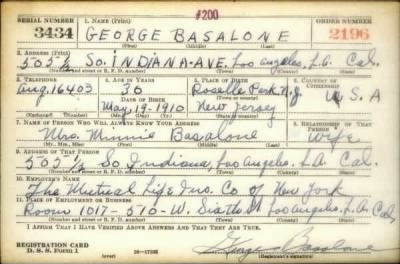 #200
SERIAL NUMBER 1. NAME (Print) ORDER NUMBER
3434 GEORGE BASALONE 2196
(First) (Middle) (Last)
2. ADDRESS (Print)
505½ So. INDIANA-AVE, Los Angeles, L.A. Cal.
(Number and street or R. F. D. number) (Town) (County) (State)
3. TELEPHONE 4. AGE IN YEARS 5. PLACE OF BIRTH 6. COUNTRY OF CITIZENSHIP
Ang. 16403 30 Roselle Park N.J U.S.A
DATE OF BIRTH (Town or county)
May-19-1910 New Jersey
(Exchange) (Number) (Mo.) (Day) (Yr.) (State or country)
7. NAME OF PERSON WHO WILL ALWAYS KNOW YOUR ADDRESS 8. RELATIONSHIP OF THAT PERSON
Mrs. Minnie Basalone Wife
(Mr., Mrs., Miss) (First) (Middle) (Last)
9. ADDRESS OF THAT PERSON
505½ So Indiana, Los Angeles, L.A. Cal.
(Number and street or R. F. D. number) (Town) (County) (State)
10. EMPLOYER'S NAME
The Mutual Life Ins. Co of New York
11. PLACE OF EMPLOYMENT OR BUSINESS
Room 1017-510-W. St Los Angeles, L.A. Cal.
(Number and street or R. F. D. number) (Town) (County) (State)
I AFFIRM THAT I HAVE VERIFIED ABOVE ANSWERS AND THAT THEY ARE TRUE.
REGISTRATION CARD
D. S. S. FORM 1 (over) George Basalone
(Registrant's signature)